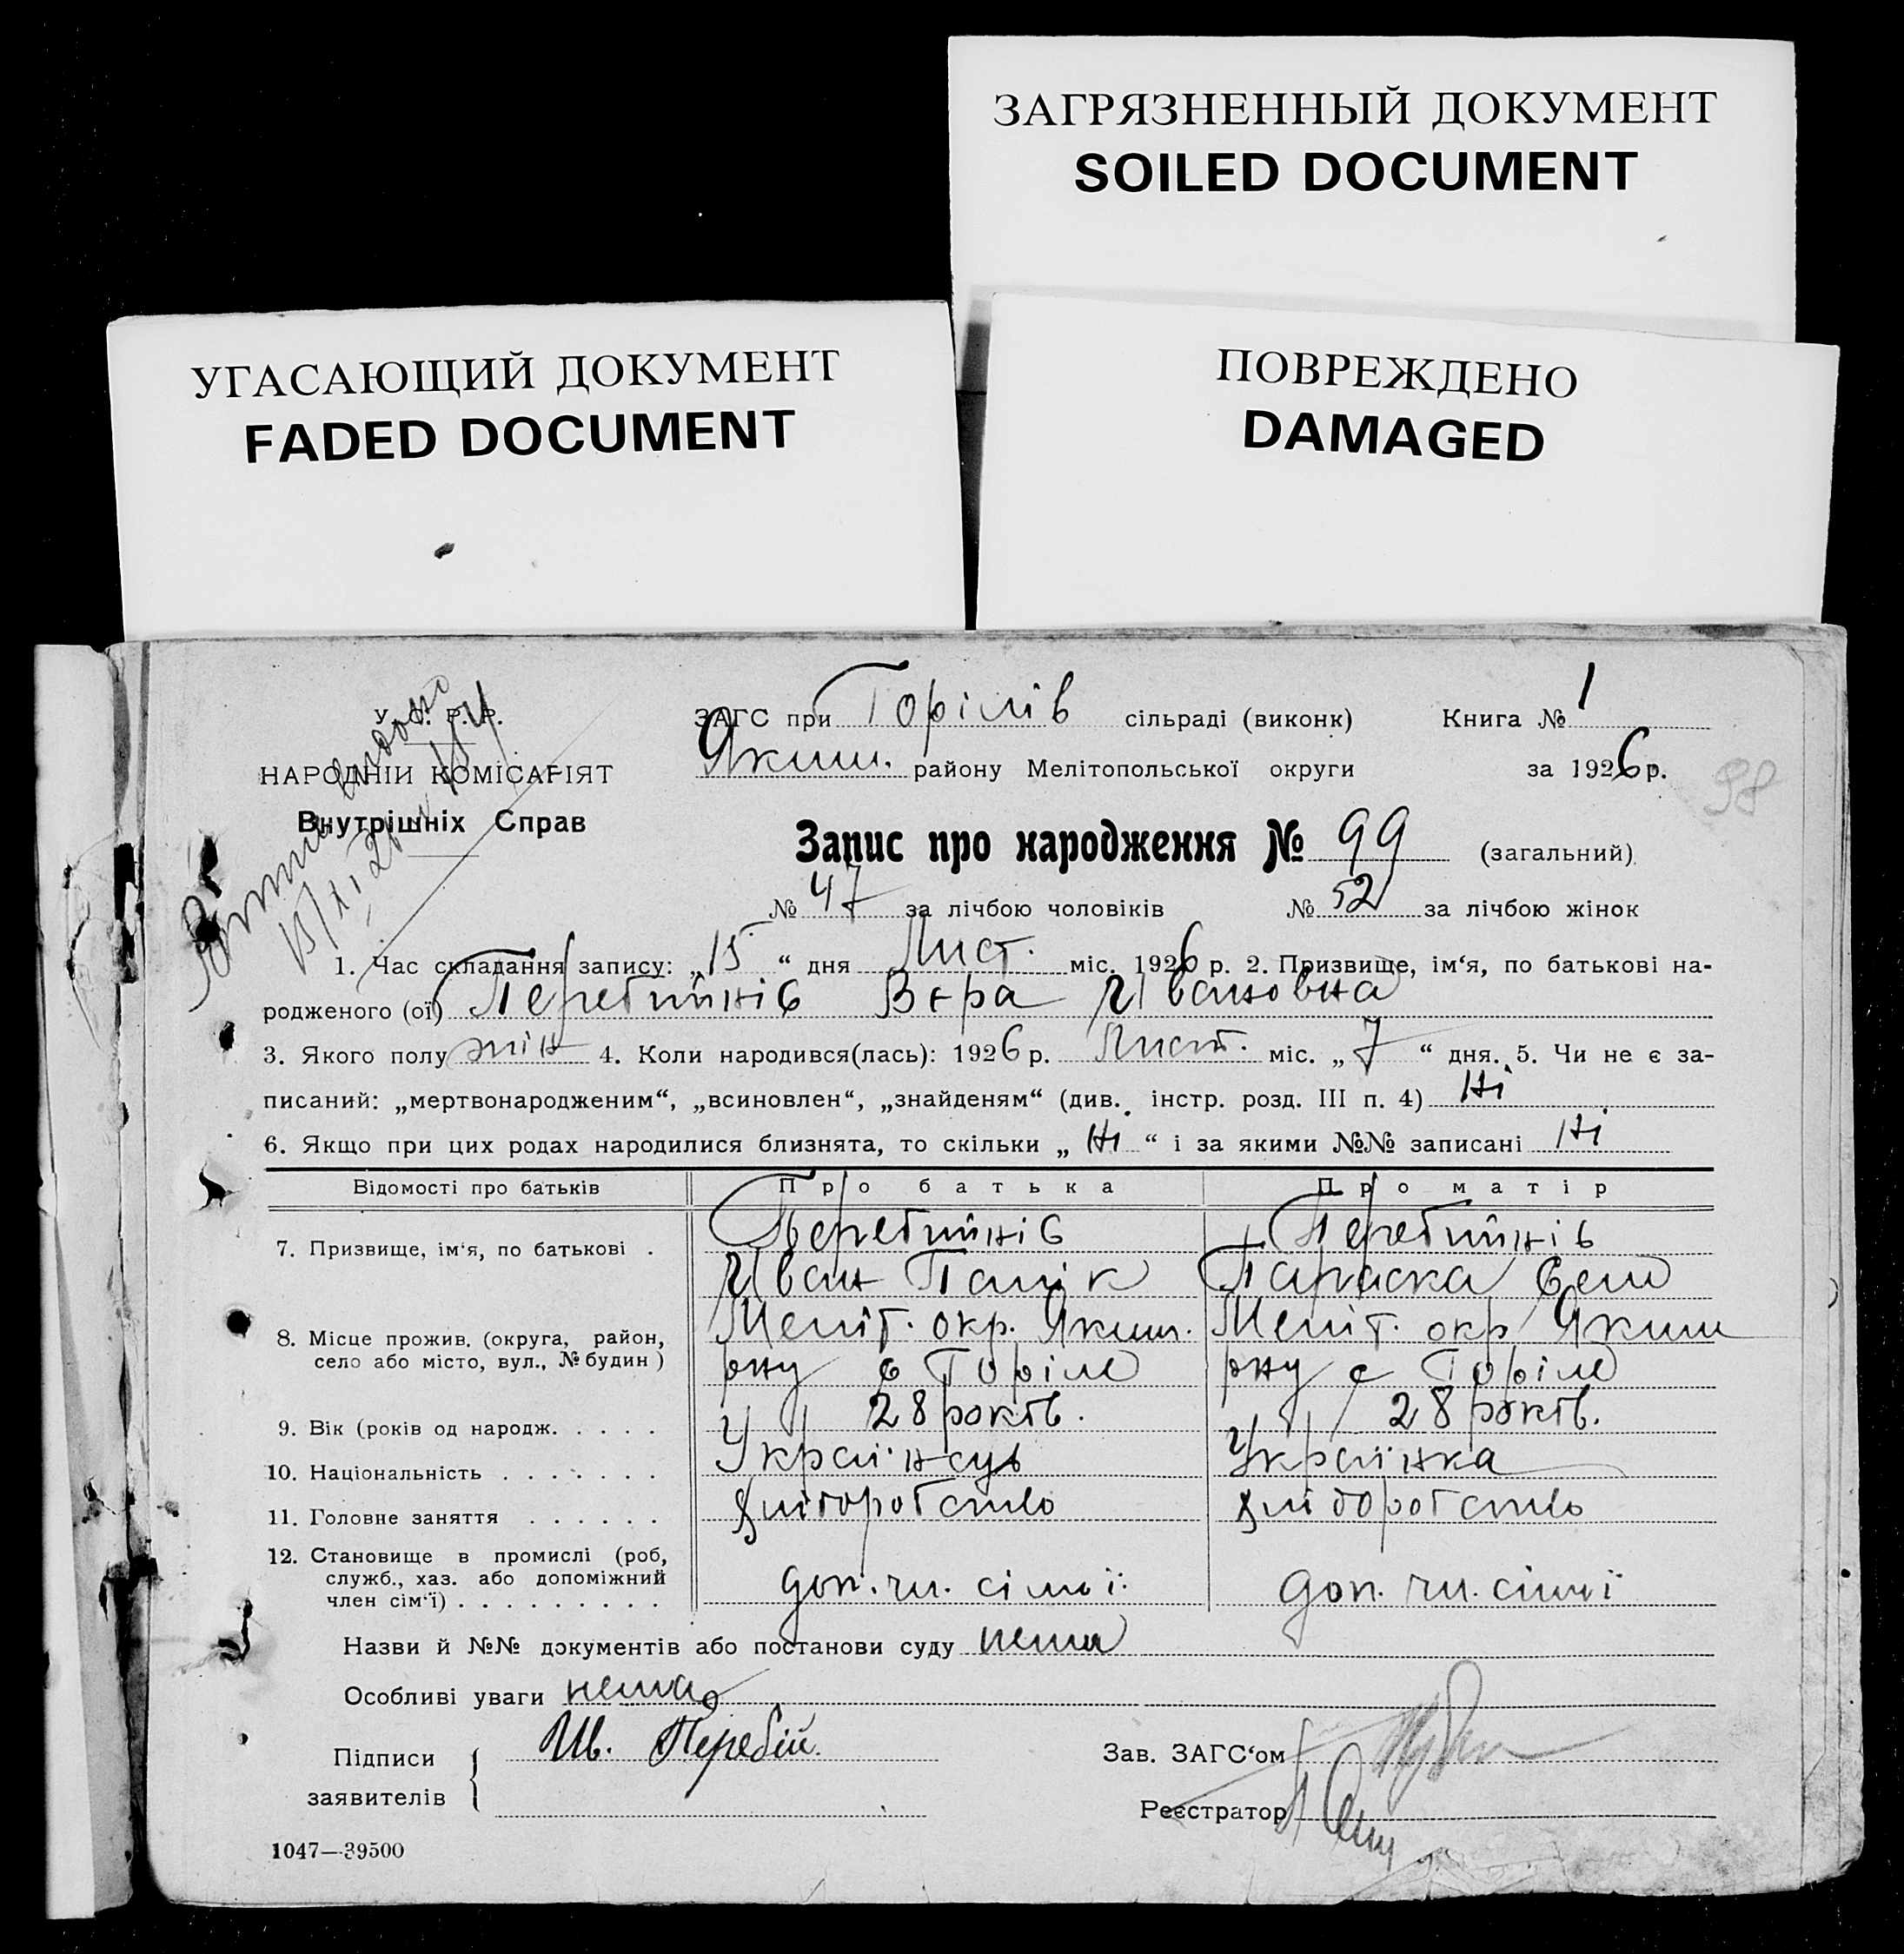 ЗАГРЯЗНЕННЫЙ ДОКУМЕНТ
SOILED DOCUMENT
УГАСАЮЩИЙ ДОКУМЕНТ
FADED DOCUMENT
ПОВРЕЖДЕНО
DAMAGED
У. С. Р. Р.
НАРОДНІЙ КОМІСАРІЯТ
Внутрішніх Справ
ЗАГС при Горілів сільраді (виконк) Книга № 1
Яким. району Мелітопольської округи за 1926 р.
98
Запис про народження № 99 (загальний)
№ 47 за лічбою чоловіків № 52 за лічбою жінок
1. Час складання запису: „15“ дня Лист. міс. 1926 р. 2. Призвище, ім‘я, по батькові на-
родженого (ої) Перебийніс Вера Івановна
3. Якого полу жін 4. Коли народився(лась): 1926 р. Лист. міс. „7“ дня. 5. Чи не є за-
писаний: „мертвонародженим“, „всиновлен“, „знайденям“ (див. інстр. розд. III п. 4) Ні
6. Якщо при цих родах народилися близнята, то скільки „Ні“ і за якими №№ записані Ні
Відомості про батьків Про батька Про матір
7. Призвище, ім‘я, по батькові . Перебийніс Перебийніс
Іван Параска
8. Місце прожив. (округа, район, Меліт. окр. Яким. Меліт. окр Яким
село або місто, вул., № будин) рну с Горіле рну с Горіле
9. Вік (років од народж. . . . . 28 років. 28 років.
10. Національність . . . . . . . Українець Українка
11. Головне заняття . . . . . . хліборобство хліборобство
12. Становище в промислі (роб,
служб., хаз. або допоміжний доп. чл. сімї доп. чл. сімї
член сім‘ї) . . . . . . . . .
Назви й №№ документів або постанови суду нема
Особливі уваги нема
Підписи Ив. Перебий. Зав. ЗАГС‘ом
заявителів Реєстратор
1047—39500